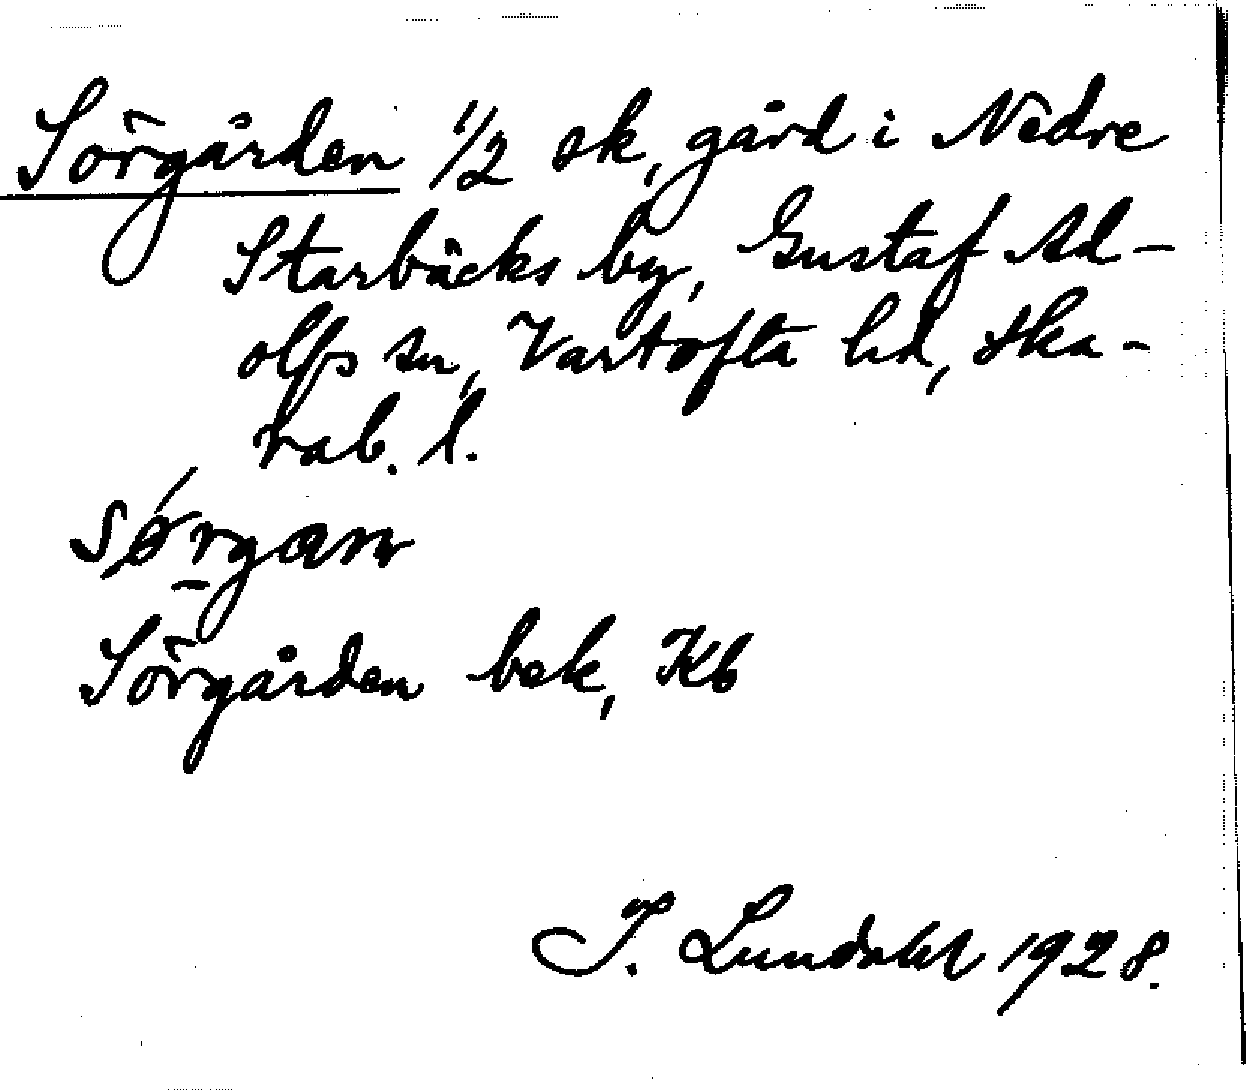 Sörgården 1/2 sk, gård i Nedre
Starbäcks by, Gustaf Ad-
olfs sn, Vartofta hd, Ska-
rab. l.
sǿrgan
Sörgården bek, Kb
I. Lundahl 1928.